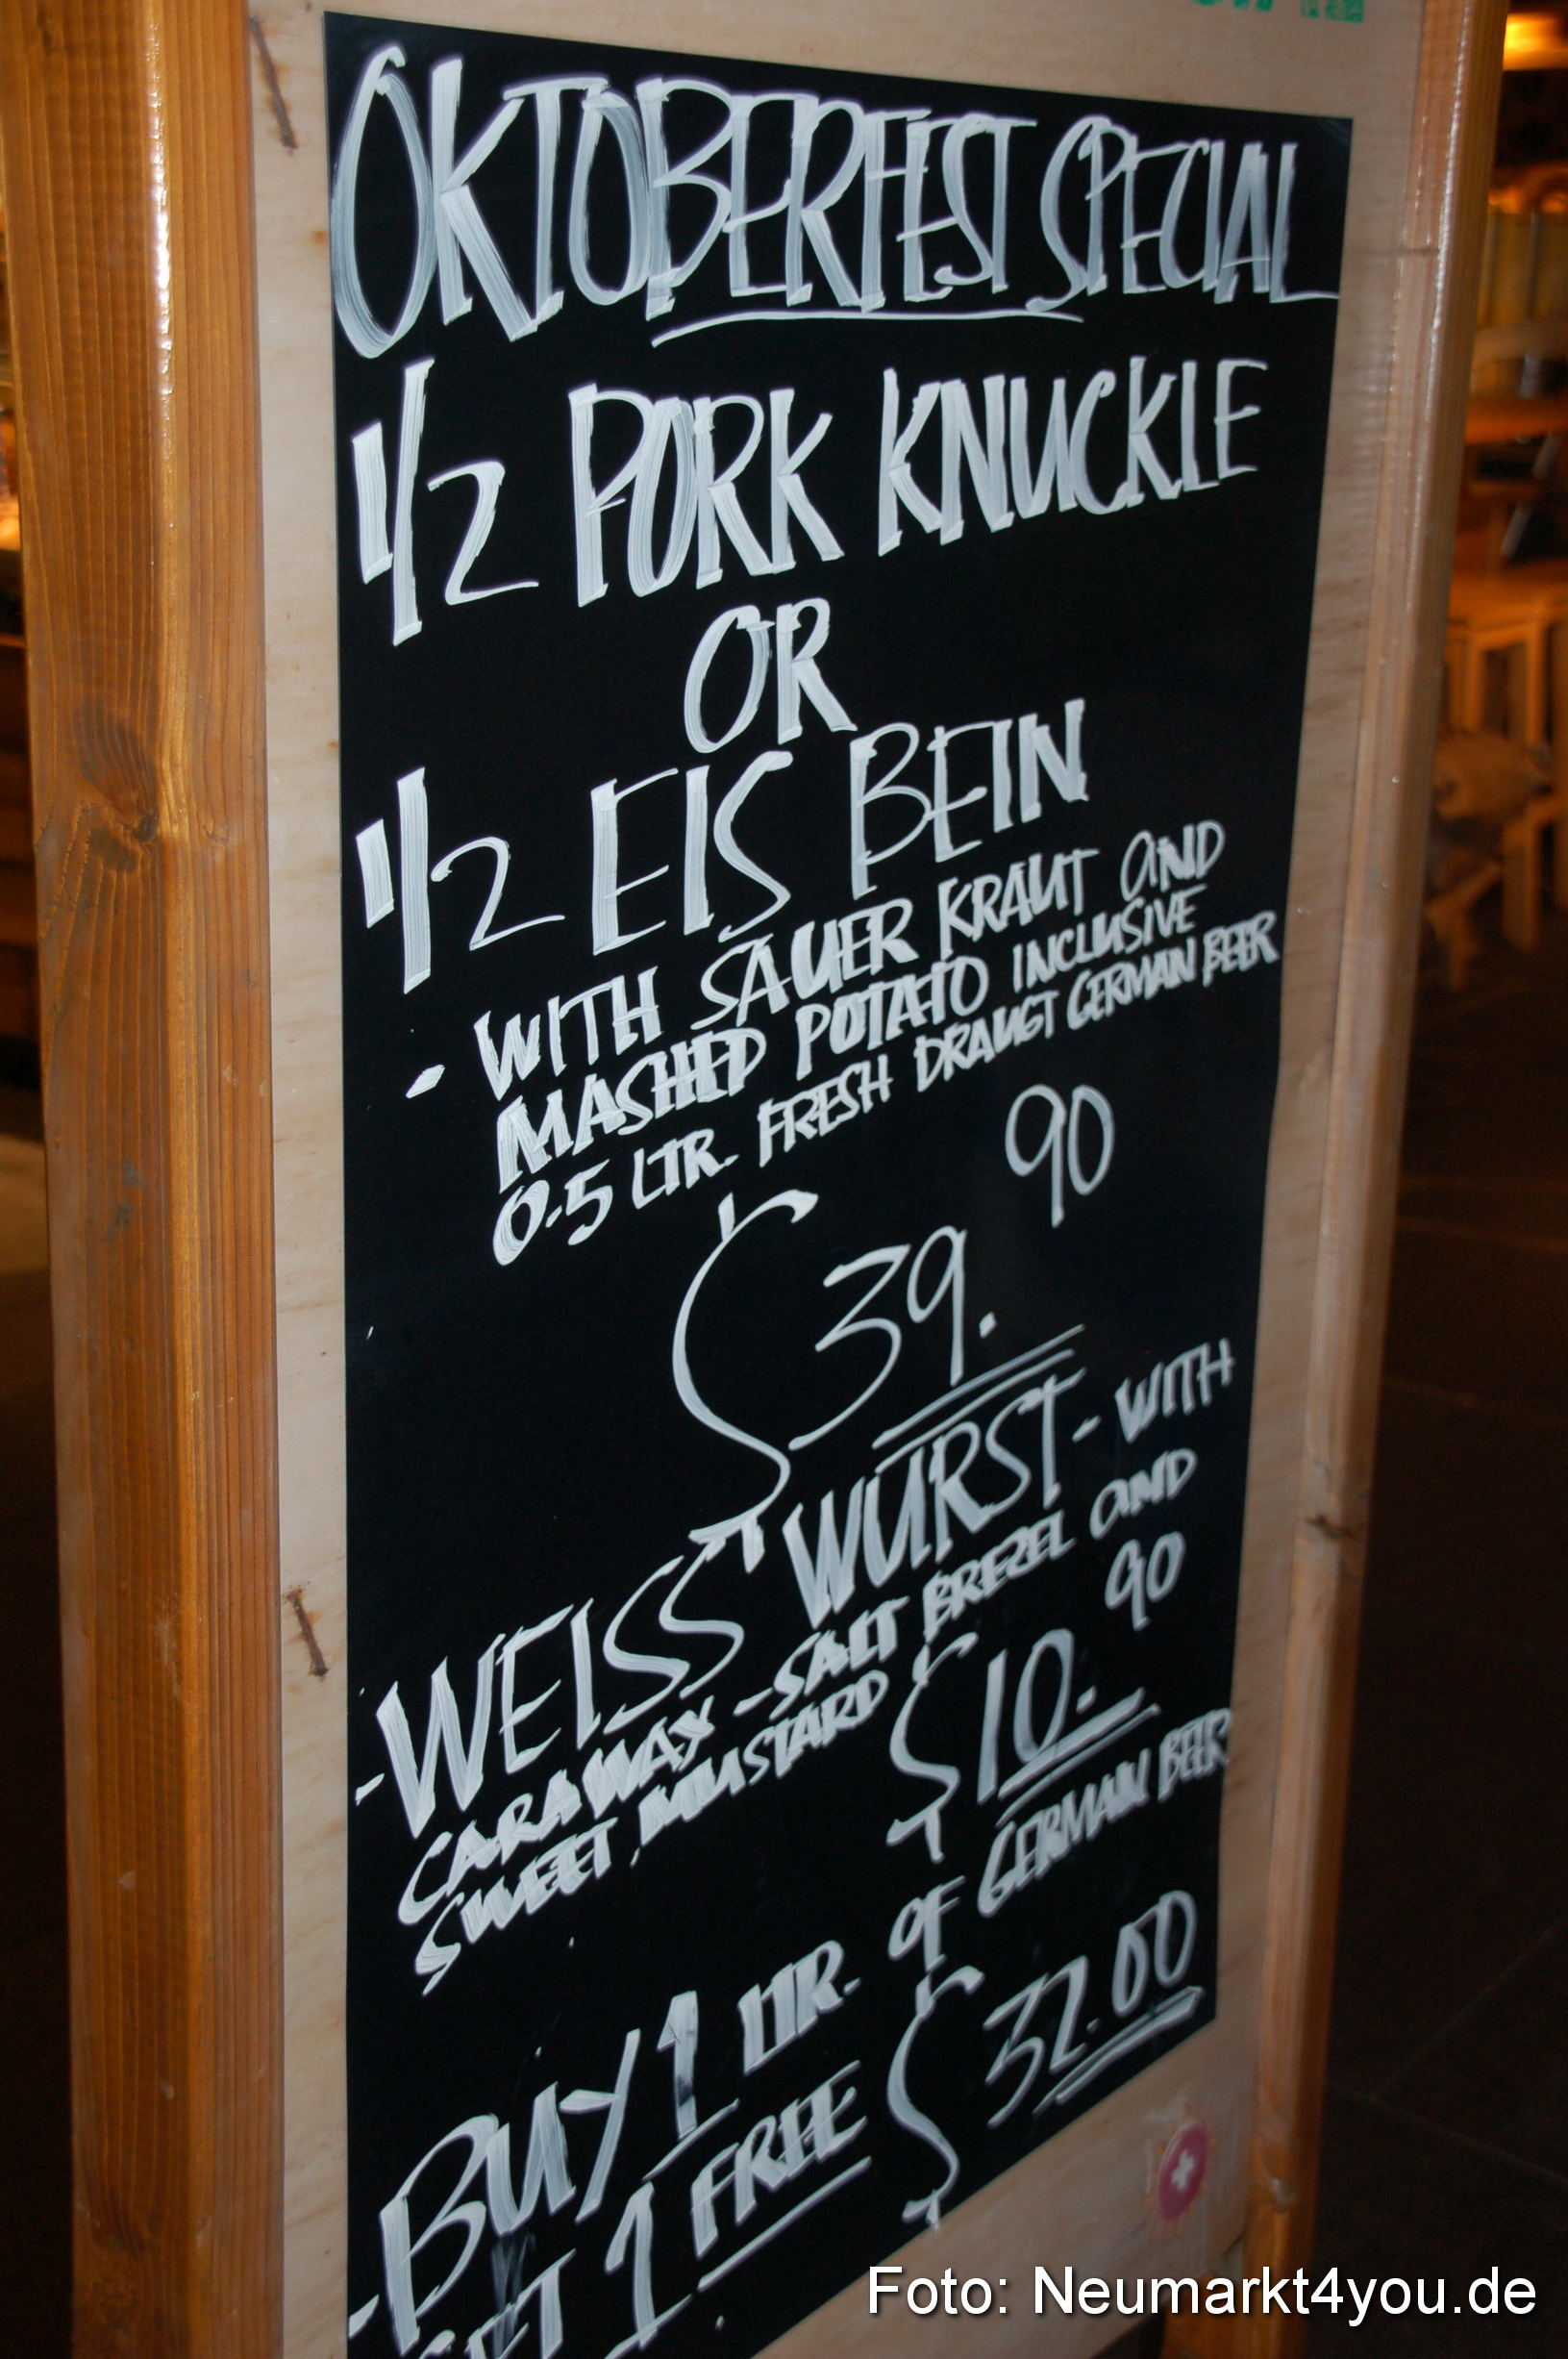 OKTOBERFEST SPECIAL
1/2 PORK KNUCKLE
OR
1/2 EIS BEIN
- WITH SAUER KRAUT AND
MASHED POTATO INCLUSIVE
0.5 LTR. FRESH DRAUGT GERMAN BEER
$39.90
-WEISS WURST - WITH
CARAWAY - SALT BREZEL AND
SWEET MUSTARD $10.90
-BUY 1 LTR. OF GERMAN BEER
GET 1 FREE $32.00
Foto: Neumarkt4you.de